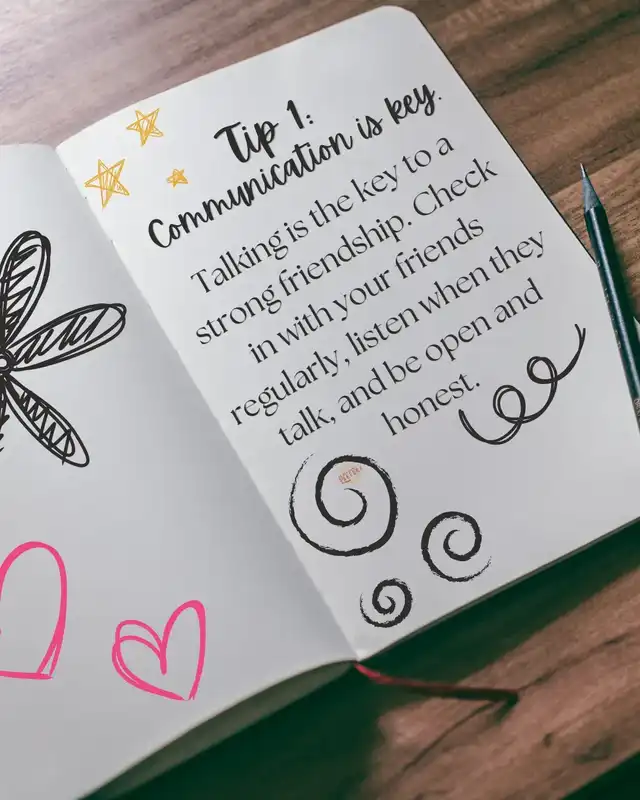 Tip 1:
Communication is key.
Talking is the key to a
strong friendship. Check
in with your friends
regularly, listen when they
talk, and be open and
honest.